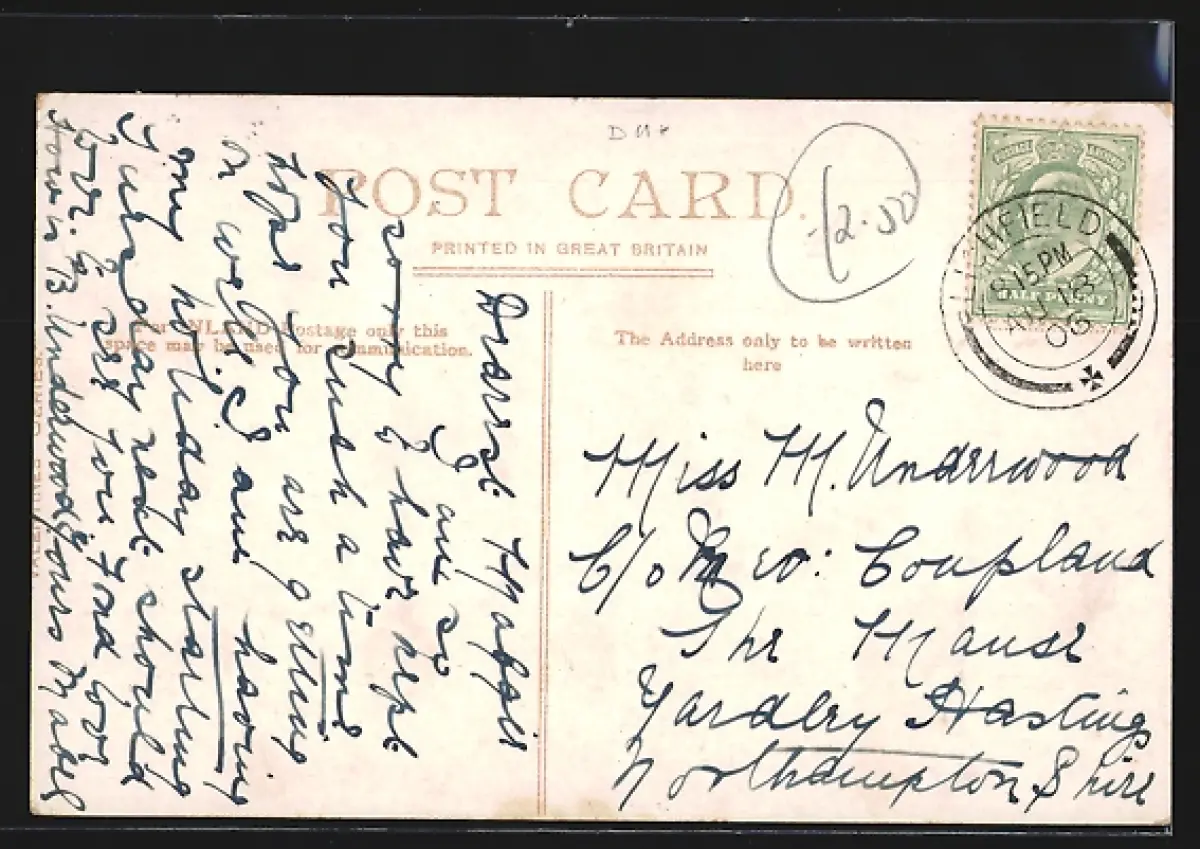 POST CARD.
PRINTED IN GREAT BRITAIN
For INLAND Postage only this
space may be used for Communication.
The Address only to be written
here
12.50
HALF PENNY
LICHFIELD
8 15 PM
AU 18
06
Dearest
I am so
sorry I have kept
you such a time
hope you are getting
on well I am having
my holiday starting
Tuesday next should
love to see you Fond love
Yours Mabel
Miss M. Underwood
C/o Coupland
The Manse
Yardley Hastings
Northampton Shire